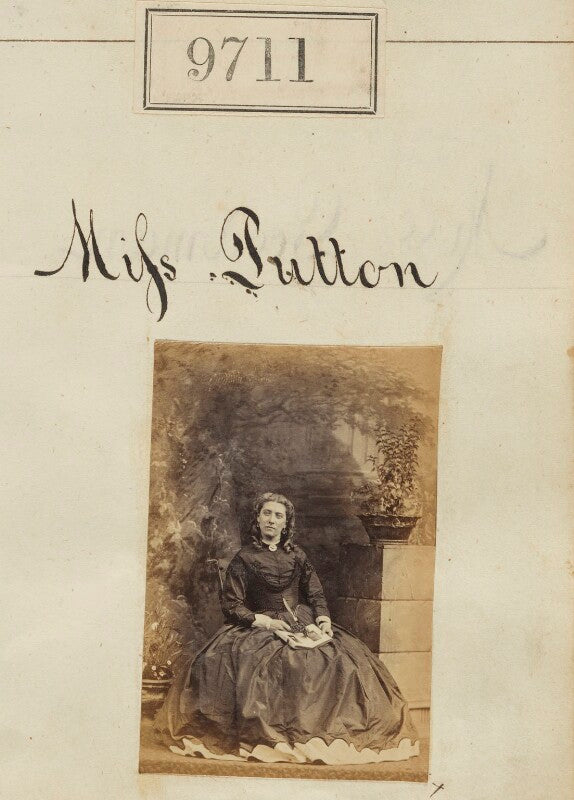 9711
Miſs Tutton